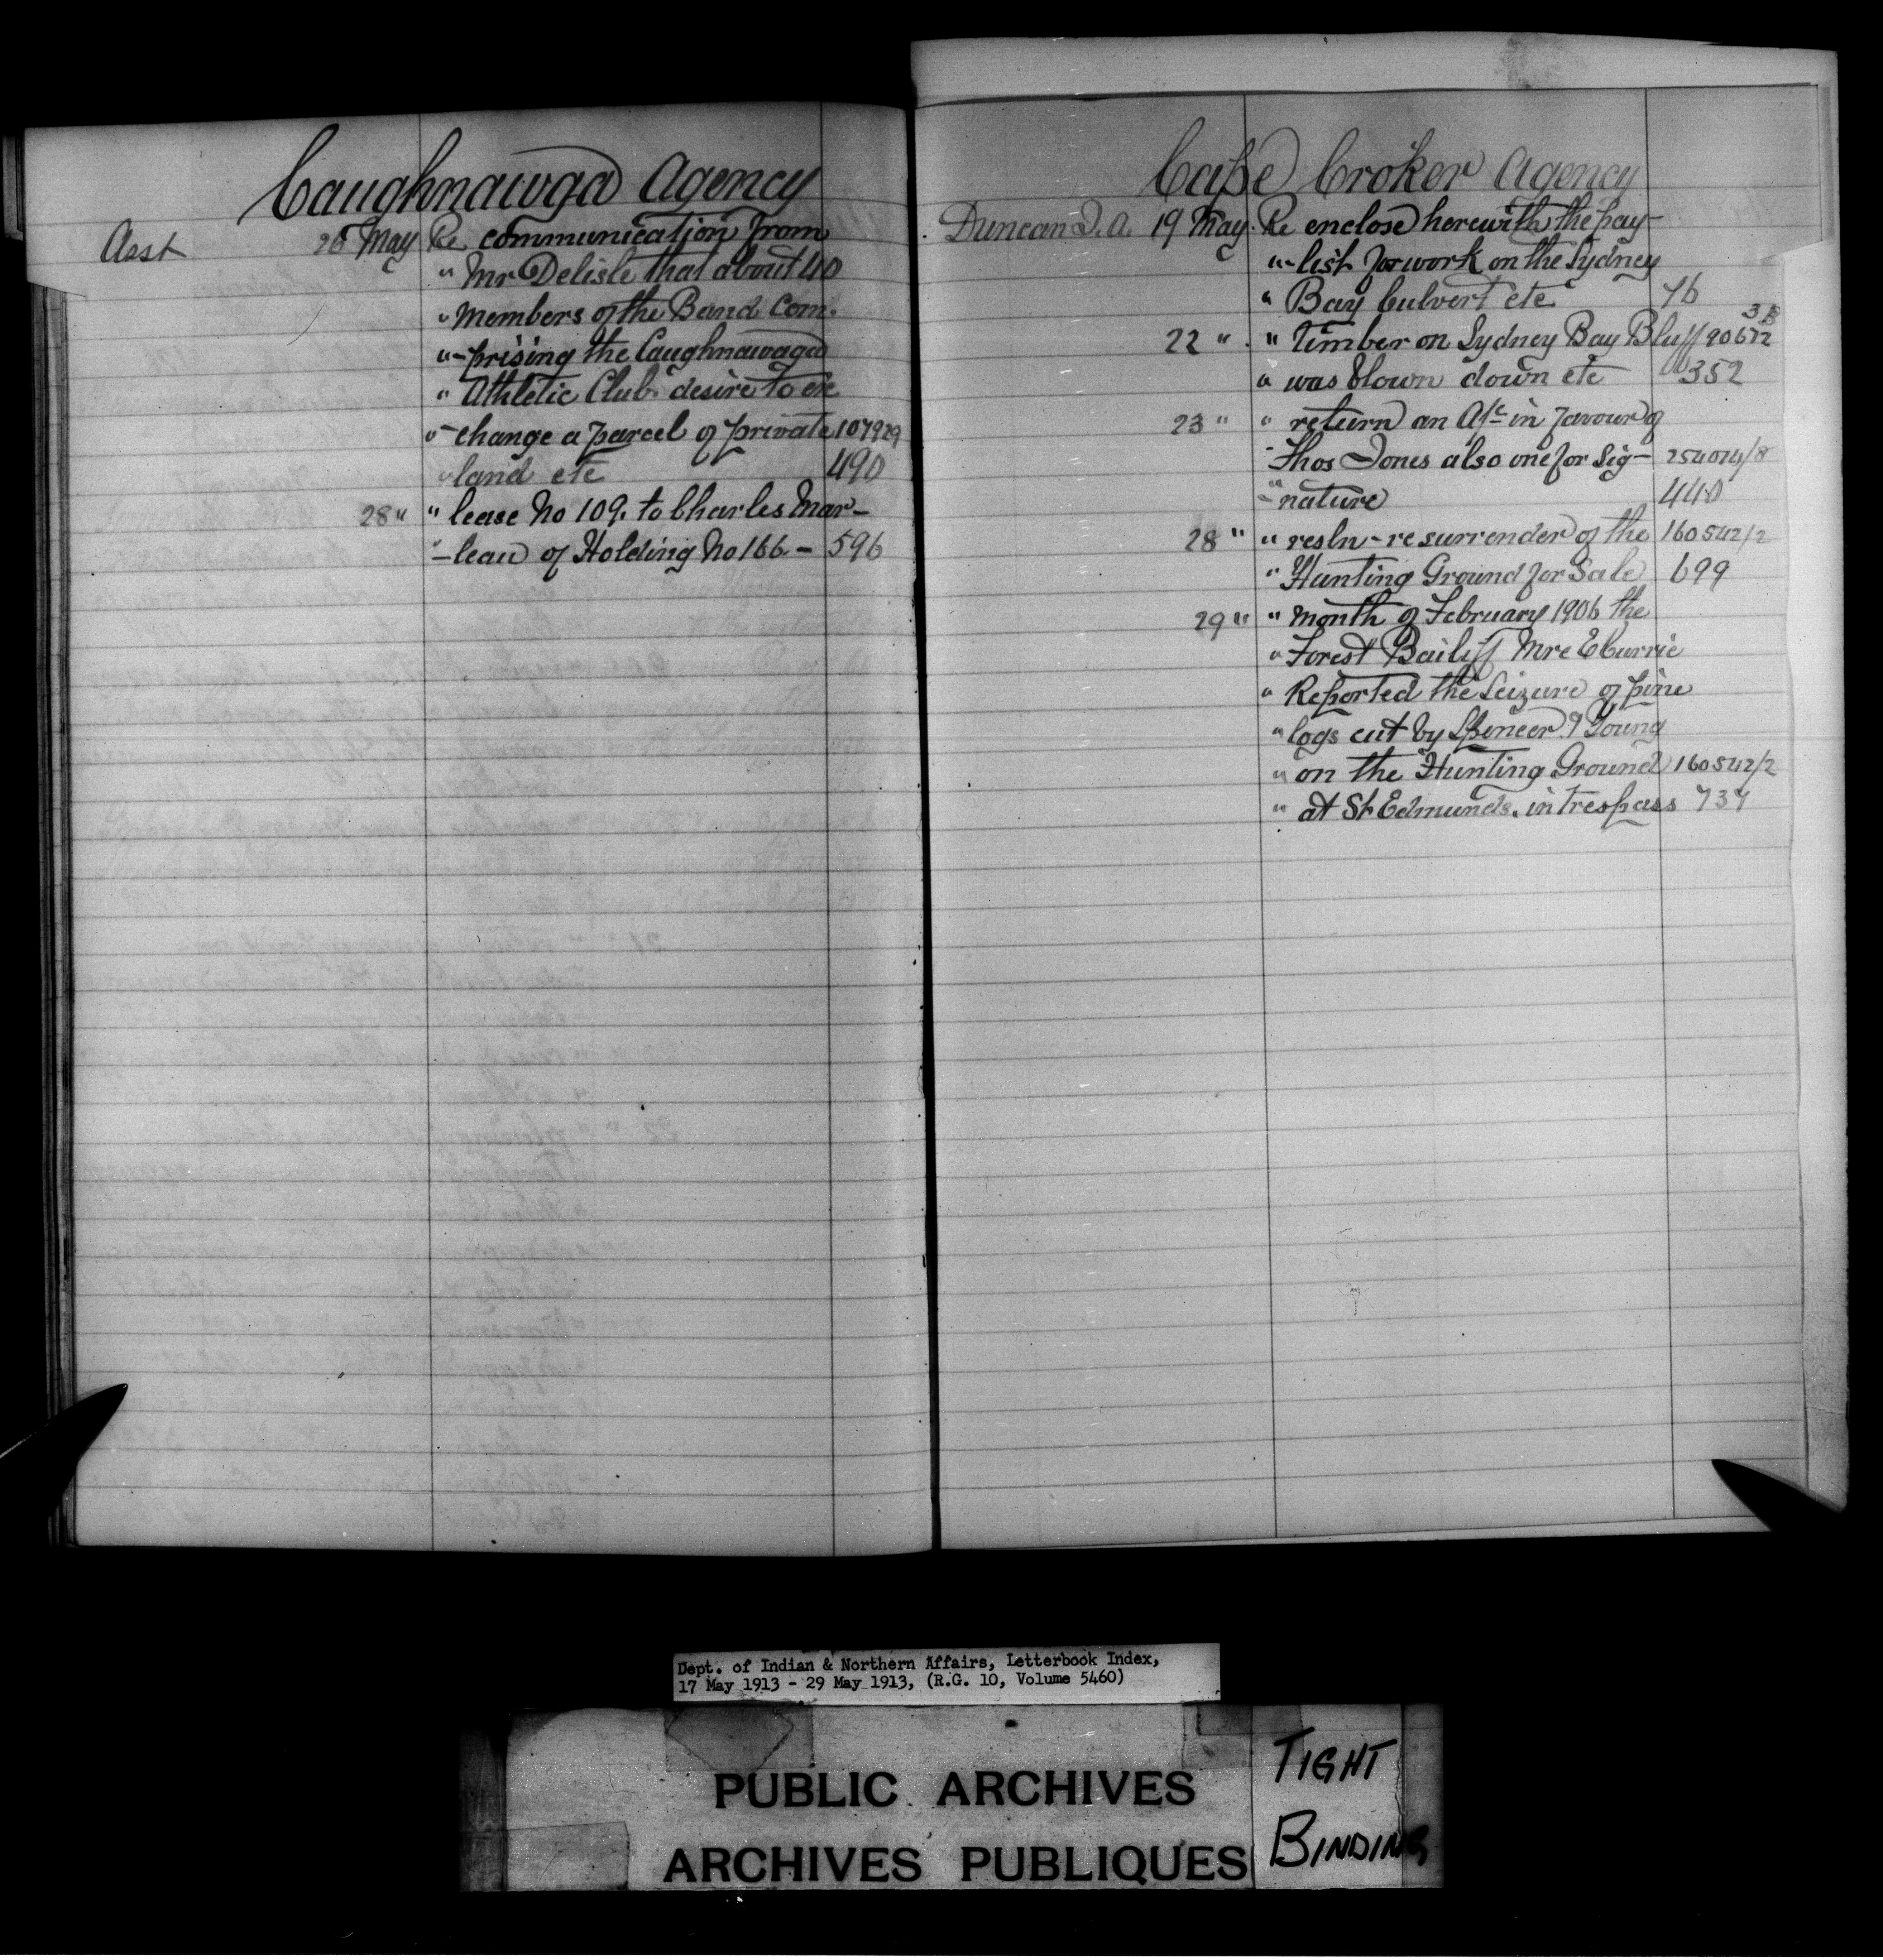 Caughnawaga Agency
Asst 26 May Re communication from
" Mr Delisle that about 40
" Members of the Band Com-
"-prising the Caughnawaga
" Athletic Club desire to ex
"-change a parcel of private 107929
" land etc 490
28 " " lease No 109. to Charles Mar-
"-leau of Holding No 166 - 596
Cape Croker Agency
Duncan J. A. 19 May. Re enclose herewith the pay-
"-list for work on the Sydney
" Bay Culvert etc 76
22 " " Timber on Sydney Bay Bluff 90672
" was blown down etc 352
23 " " return an A/c in favour of
" Thos Jones also one for Sig- 254024/8
"-nature 440
28 " " resln - re surrender of the 160542/2
" Hunting Ground for Sale 699
29 " " month of February 1906 the
" Forest Bailiff Mr E Currie
" Reported the Seizure of pine
" logs cut by Spencer & Young
" on the Hunting Ground 160542/2
" at St Edmunds. in Trespass 737
Dept. of Indian & Northern Affairs, Letterbook Index,
17 May 1913 - 29 May 1913, (R.G. 10, Volume 5460)
PUBLIC ARCHIVES
ARCHIVES PUBLIQUES
TIGHT
BINDING